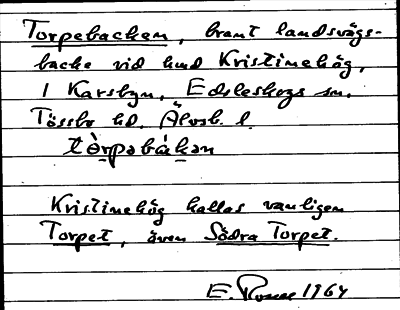 Torpebacken, brant landsvägs-
backe vid hmd Kristinehög,
1 Karsbyn, Edsleskogs sn.
Tössbo hd. Älvsb. l.
tòrpəbàkən
Kristinehög kallas vanligen
Torpet, även Södra Torpet.
E. 1964